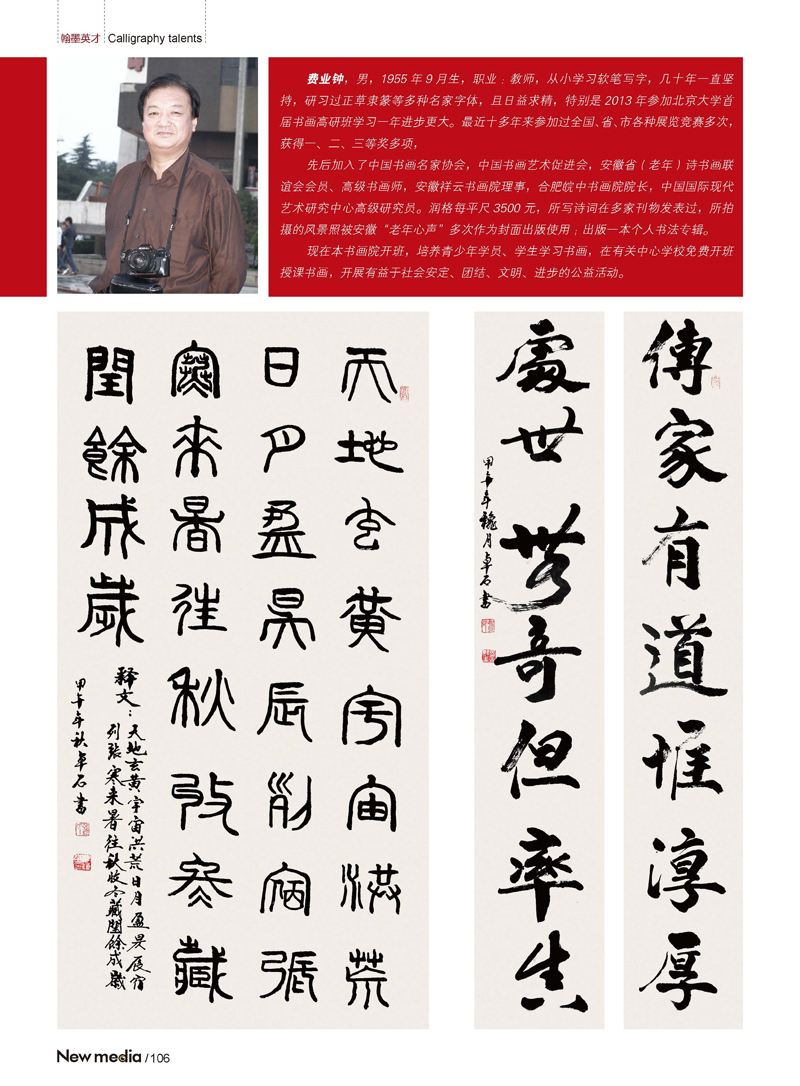 翰墨英才 Calligraphy talents
费业钟，男，1955 年 9 月生，职业：教师，从小学习软笔写字，几十年一直坚
持，研习过正草隶篆等多种名家字体，且日益求精，特别是 2013 年参加北京大学首
届书画高研班学习一年进步更大。最近十多年来参加过全国、省、市各种展览竞赛多次，
获得一、二、三等奖多项，
先后加入了中国书画名家协会，中国书画艺术促进会，安徽省（老年）诗书画联
谊会会员、高级书画师，安徽祥云书画院理事，合肥皖中书画院院长，中国国际现代
艺术研究中心高级研究员。润格每平尺 3500 元，所写诗词在多家刊物发表过，所拍
摄的风景照被安徽“老年心声”多次作为封面出版使用；出版一本个人书法专辑。
现在本书画院开班，培养青少年学员、学生学习书画，在有关中心学校免费开班
授课书画，开展有益于社会安定、团结、文明、进步的公益活动。
傳家有道惟淳厚
處世無奇但率真
甲午年穐月卓石書
天地玄黃宇宙洪荒
日月盈昃辰列宿張
寒來暑往秋收冬藏
閏餘成歲
释文：天地玄黄宇宙洪荒日月盈昃辰宿
列張寒来暑往秋收冬藏閏餘成歲
甲午年秋卓石書
New media / 106